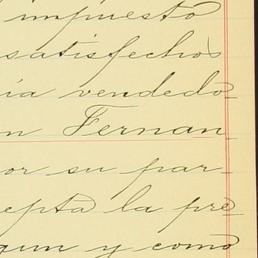 impuesto
satisfechos
ia vendedo_
n Fernan_
or su par_
epta la pre_
gun y como